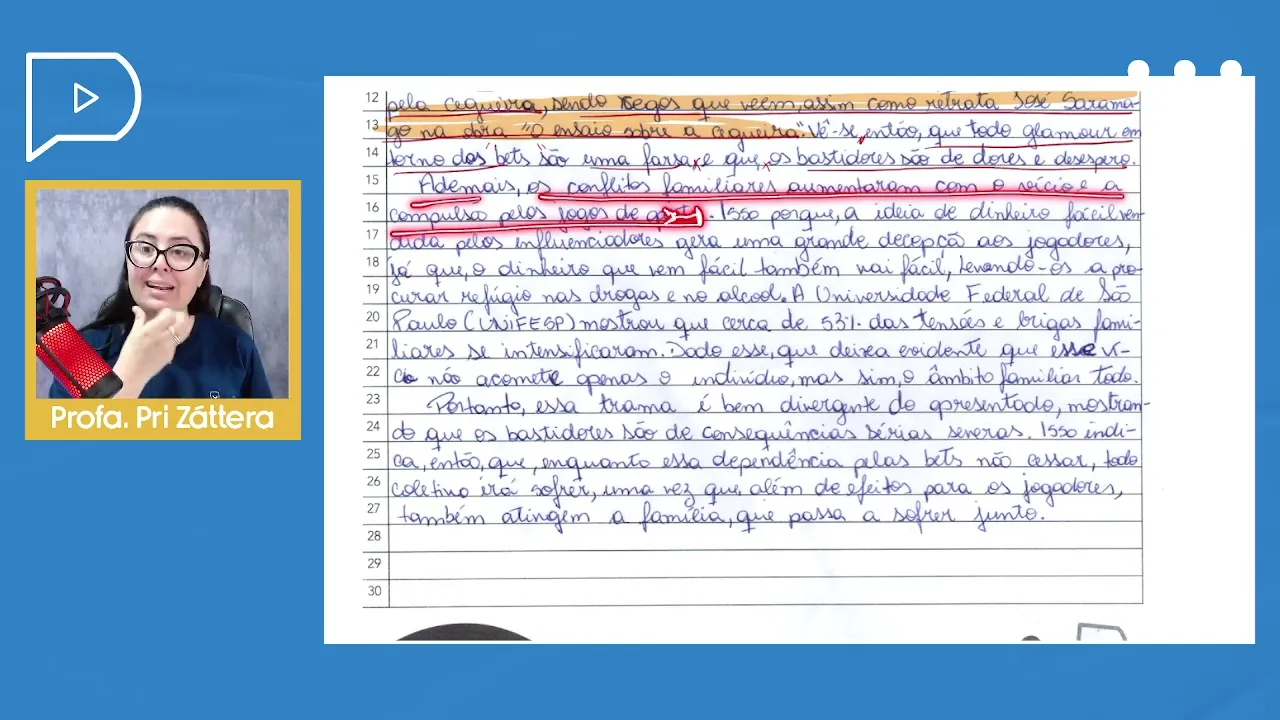 12 pela cegueira, sendo cegos que veem, assim como retrata José Sarama-
13 go na obra "O ensaio sobre a cegueira". Vê-se, então, que todo glamour em
14 torno das bets são uma farsa, e que, os bastidores são de dores e desespero.
15 Ademais, os conflitos familiares aumentaram com o vício e a
16 compulsão pelos jogos de . Isso porque, a ideia de dinheiro fácil ven-
17 dida pelos influenciadores gera uma grande decepção aos jogadores,
18 já que, o dinheiro que vem fácil também vai fácil, levando-os a pro-
19 curar refúgio nas drogas e no alcool. A Universidade Federal de São
20 Paulo (UNIFESP) mostrou que cerca de 53% das tensões e brigas fami-
21 liares se intensificaram. Dado esse, que deixa evidente que esse ví-
22 cio não acomete apenas o indivíduo, mas sim, o âmbito familiar todo.
23 Portanto, essa trama é bem divergente do apresentado, mostran-
24 do que os bastidores são de consequências sérias severas. Isso indi-
25 ca, então, que, enquanto essa dependência pelas bets não cessar, todo
26 coletivo irá sofrer, uma vez que além de efeitos para os jogadores,
27 também atingem a família, que passa a sofrer junto.
28
29
30
Profa. Pri Záttera